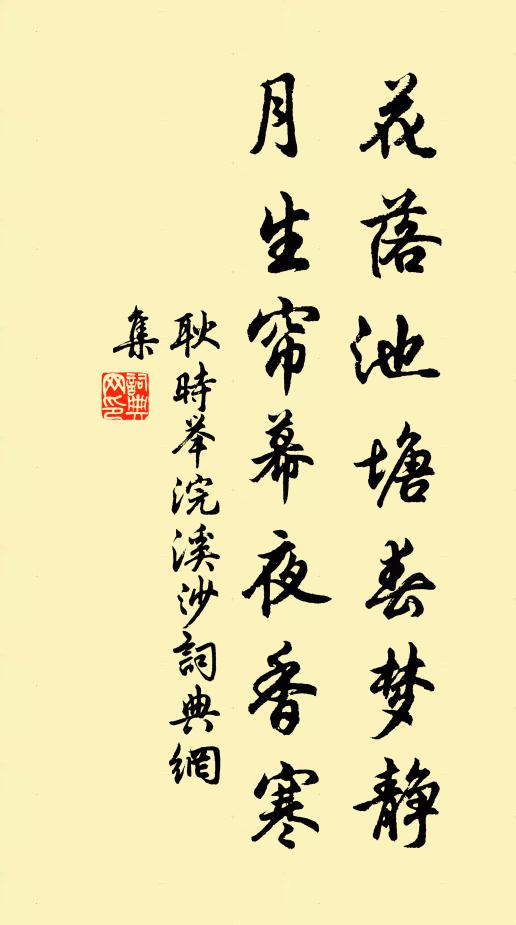 花落池塘春梦静
月生帘幕夜香寒
耿時举浣溪沙詞典網
集
詞典网印